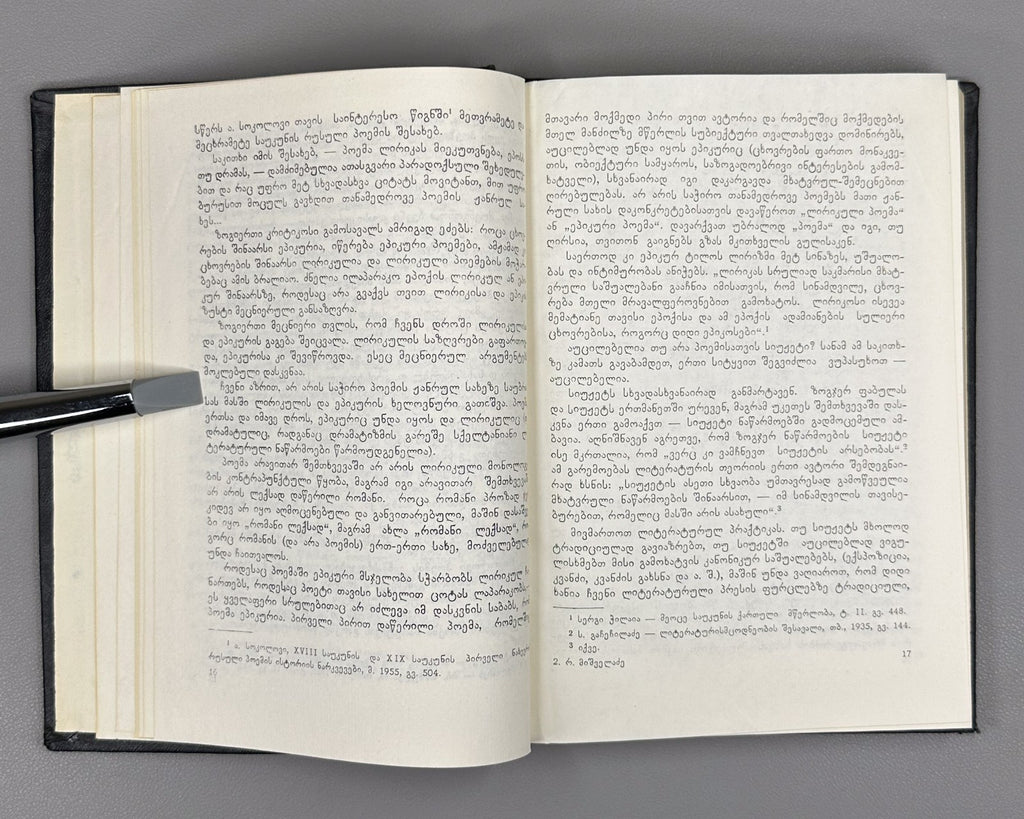 წერს ა. სოკოლოვი თავის საინტერესო წიგნში¹ მეთვრამეტე
მეცხრამეტე საუკუნის რუსული პოემის შესახებ.
საკითხი იმის შესახებ, — პოემა ლირიკას მიეკუთვნება,
თუ დრამას, — დამძიმებულია ათასგვარი პარადოქსული
ბით და რაც უფრო მეტ სხვადასხვა ციტატს მოვიტანთ, მით
ბურუსით მოცულს გავხდით თანამედროვე პოემის ჟანრულ
ხეს...
ზოგიერთი კრიტიკოსი გამოსავალს ამრიგად ეძებს: როცა
რების შინაარსი ეპიკურია, იწერება ეპიკური პოემები,
ცხოვრების შინაარსი ლირიკულია და ლირიკული პოემების
ბებაც ამის ბრალიო. ძნელია ილაპარაკო ეპოქის ლირიკულ ან
კურ შინაარსზე, როდესაც არა გვაქვს თვით ლირიკისა და
ზუსტი მეცნიერული განსაზღვრა.
ზოგიერთი მეცნიერი თვლის, რომ ჩვენს დროში
და ეპიკურის გაგება შეიცვალა. ლირიკულის საზღვრები
და, ეპიკურისა კი შევიწროვდა. ესეც მეცნიერულ
მოკლებული დასკვნაა.
ჩვენი აზრით, არ არის საჭირო პოემის ჟანრულ სახეზე
სას მასში ლირიკულის და ეპიკურის ხელოვნური გათიშვა.
ერთსა და იმავე დროს, ეპიკურიც უნდა იყოს და ლირიკულიც
დრამატულიც, რადგანაც დრამატიზმის გარეშე სქელტანიანი
ტერატურული ნაწარმოები წარმოუდგენელია).
პოემა არავითარ შემთხვევაში არ არის ლირიკული
ბის კონტრაპუნქტული წყობა, მაგრამ იგი არავითარ
არ არის ლექსად დაწერილი რომანი. როცა რომანი პროზად
კიდევ არ იყო აღმოცენებული და განვითარებული, მაშინ
ბი იყო „რომანი ლექსად“, მაგრამ ახლა „რომანი ლექსად“,
გორც რომანის (და არა პოემის) ერთ-ერთი სახე,
უნდა ჩაითვალოს.
როდესაც პოემაში ეპიკური მსჯელობა სჭარბობს ლირიკულ
ნართებს, როდესაც პოეტი თავისი სახელით ცოტას
ეს ყველაფერი სრულებითაც არ იძლევა იმ დასკვნის საბაბს,
პოემა ეპიკურია. პირველი პირით დაწერილი პოემა,
¹ ა. სოკოლოვი, XVIII საუკუნის და XIX საუკუნის პირველი
რუსული პოემის ისტორიის ნარკვევები, მ. 1955, გვ. 504.
16
მთავარი მოქმედი პირი თვით ავტორია და რომელშიც მოქმედების
მთელ მანძილზე მწერლის სუბიექტური თვალთახედვა დომინირებს,
აუცილებლად უნდა იყოს ეპიკურიც (ცხოვრების ფართო მონაკვე-
თის, ობიექტური სამყაროს, საზოგადოებრივი ინტერესების გამომ-
ხატველი), სხვანაირად იგი დაკარგავდა მხატვრულ-შემეცნებით
ღირებულებას. არ არის საჭირო თანამედროვე პოემებს მათი ჟან-
რული სახის დაკონკრეტებისათვის დავაწეროთ „ლირიკული პოემა“
ან „ეპიკური პოემა“. დავარქვათ უბრალოდ „პოემა“ და იგი, თუ
ღირსია, თვითონ გაიგნებს გზას მკითხველის გულისაკენ.
საერთოდ კი ეპიკურ ტილოს ლირიზმი მეტ სინაზეს, უშუალო-
ბას და ინტიმურობას ანიჭებს. „ლირიკას სრულიად საკმარისი მხატ-
ვრული საშუალებანი გააჩნია იმისათვის, რომ სინამდვილე, ცხოვ-
რება მთელი მრავალფეროვნებით გამოხატოს. ლირიკოსი ისევეა
მემატიანე თავისი ეპოქისა და ამ ეპოქის ადამიანების სულიერი
ცხოვრებისა, როგორც დიდი ეპიკოსები“.¹
აუცილებელია თუ არა პოემისათვის სიუჟეტი? სანამ ამ საკითხ-
ზე კამათს გავაბამდეთ, ერთი სიტყვით შეგვიძლია ვუპასუხოთ —
აუცილებელია.
სიუჟეტს სხვადასხვანაირად განმარტავენ. ზოგჯერ ფაბულას
და სიუჟეტს ერთმანეთში ურევენ, მაგრამ უკეთეს შემთხვევაში დას-
კვნა ერთი გამოაქვთ — სიუჟეტი ნაწარმოებში გადმოცემული ამ-
ბავია. აღნიშნავენ აგრეთვე, რომ ზოგჯერ ნაწარმოების სიუჟეტი
ისე მკრთალია, რომ „ვერც კი ვამჩნევთ სიუჟეტის არსებობას“.²
ამ გარემოებას ლიტერატურის თეორიის ერთი ავტორი შემდეგნაი-
რად ხსნის: „სიუჟეტის ასეთი სხვაობა უმთავრესად გამოწვეულია
მხატვრული ნაწარმოების შინაარსით, — იმ სინამდვილის თავისე-
ბურებით, რომელიც მასში არის ასახული“.³
მივმართოთ ლიტერატურულ პრაქტიკას. თუ სიუჟეტს მხოლოდ
ტრადიციულად გავიაზრებთ, თუ სიუჟეტში აუცილებლად ვიგუ-
ლისხმებთ მისი გამოხატვის კანონიკურ საშუალებებს, (ექსპოზიცია,
კვანძი, კვანძის გახსნა და ა. შ.), მაშინ უნდა ვაღიაროთ, რომ დიდი
ხანია ჩვენი ლიტერატურული პრესის ფურცლებზე ტრადიციული,
¹ სერგი ჭილაია — მეოცე საუკუნის ქართული მწერლობა, ტ. 11. გვ. 448.
² ს. გაჩეჩილაძე — ლიტერატურისმცოდნეობის შესავალი, თბ., 1935, გვ. 144.
³ იქვე.
2. რ. მიშველაძე
17